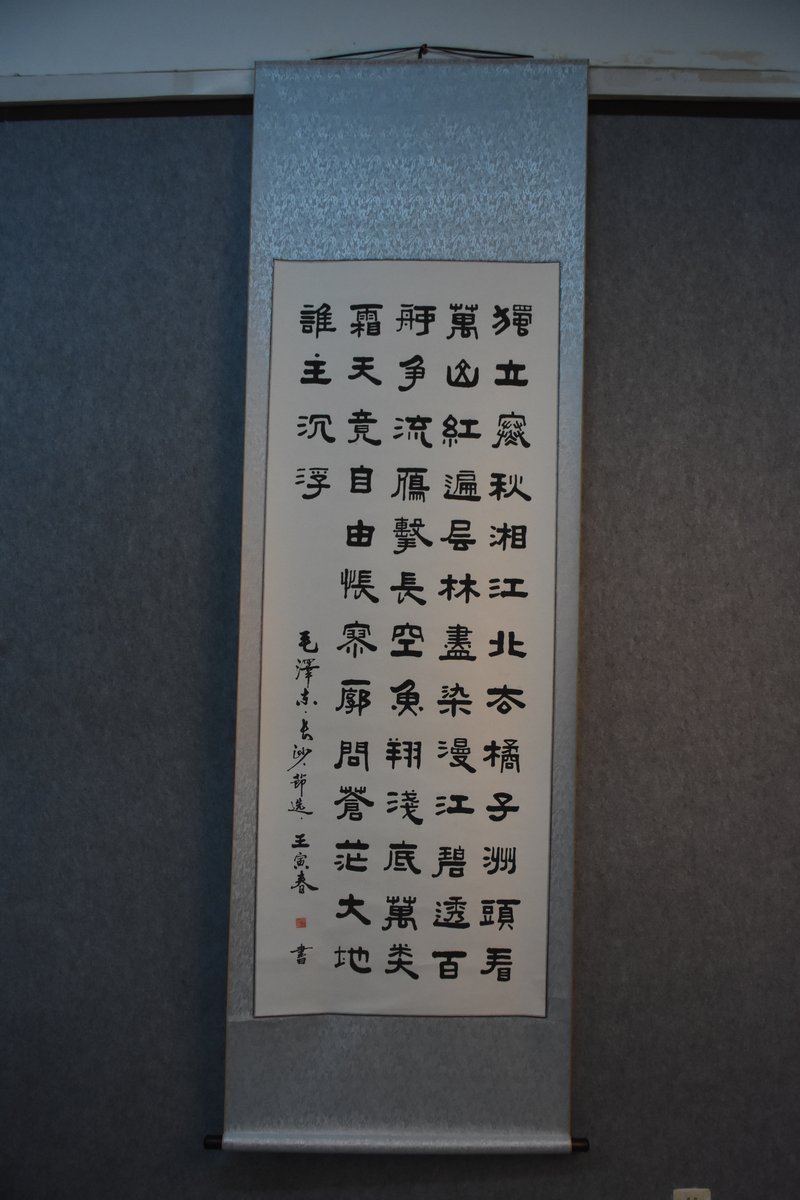 獨立寒秋湘江北去橘子洲頭看
萬山紅遍层林盡染漫江碧透百
舸争流鷹擊長空魚翔淺底萬类
霜天竟自由悵寥廓問蒼茫大地
誰主沉浮
毛澤东·长沙·節選·壬寅春 書